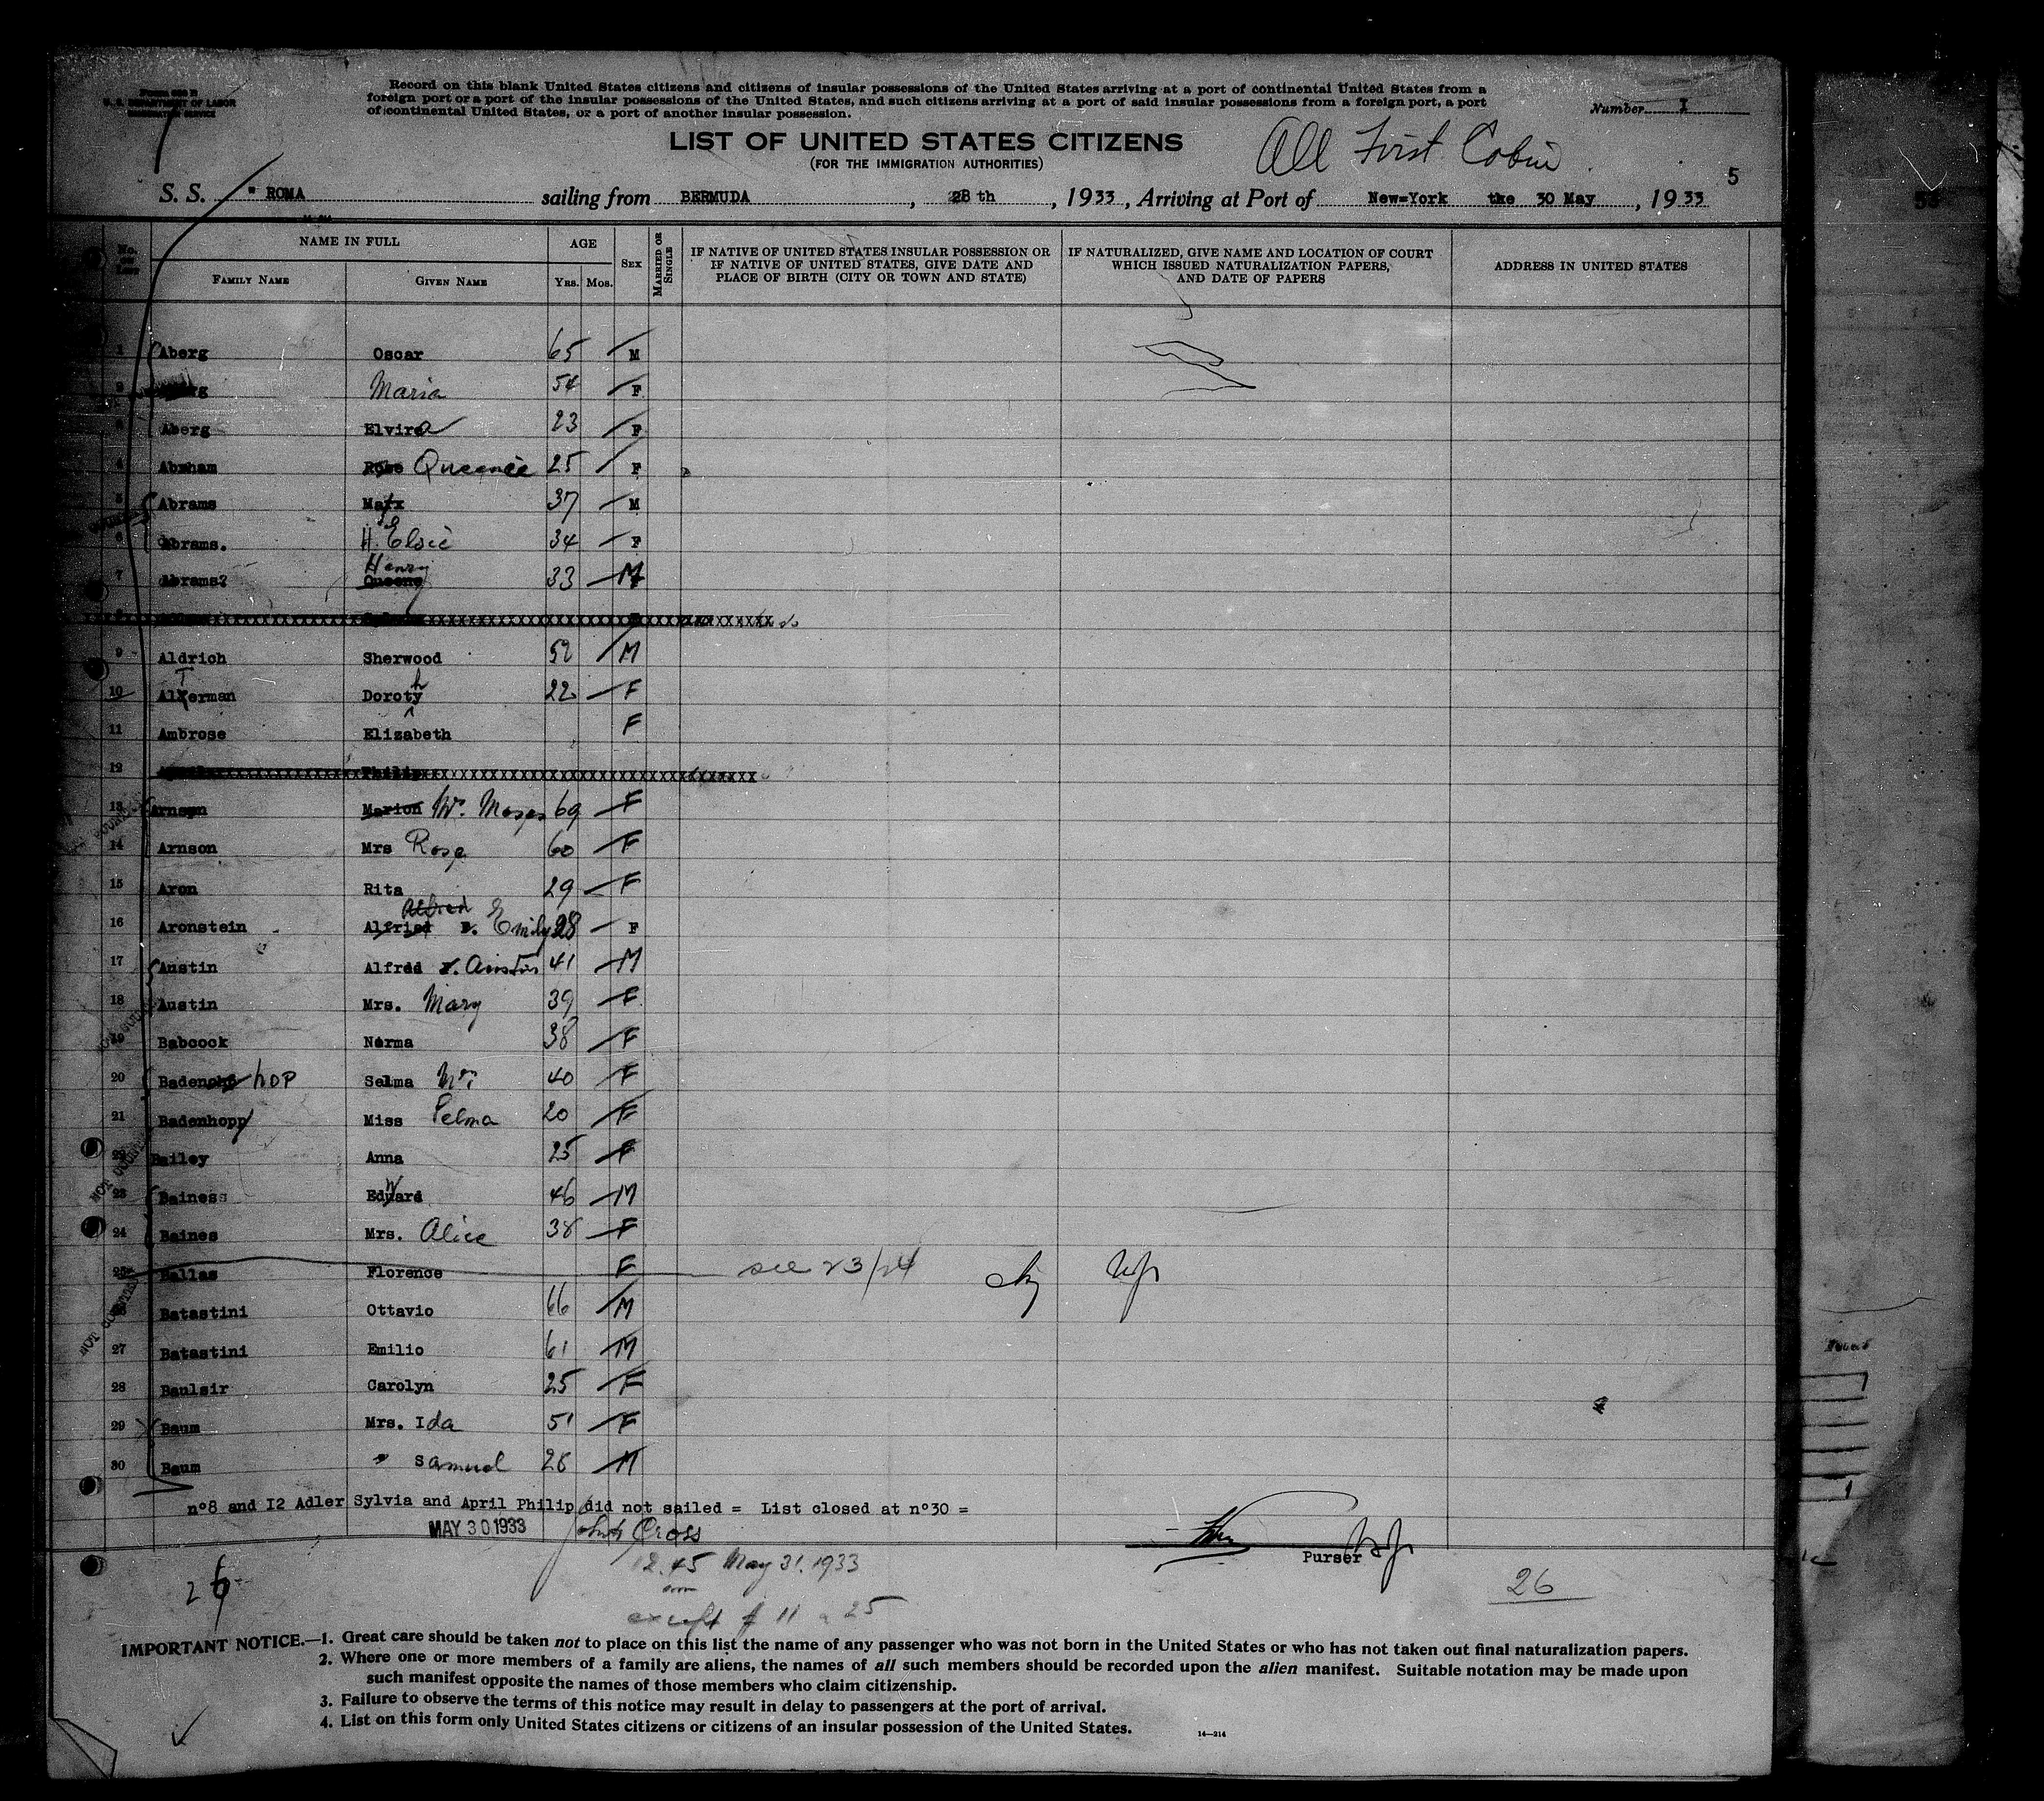 Form 630 B
U. S. DEPARTMENT OF LABOR
IMMIGRATION SERVICE
Record on this blank United States citizens and citizens of insular possessions of the United States arriving at a port of continental United States from a
foreign port or a port of the insular possessions of the United States, and such citizens arriving at a port of said insular possessions from a foreign port, a port
of continental United States, or a port of another insular possession.
Number I
LIST OF UNITED STATES CITIZENS
(FOR THE IMMIGRATION AUTHORITIES)
All First Cabin
5
S. S. " ROMA sailing from BERMUDA , 28 th , 1933, Arriving at Port of New=York the 30 May , 1933
No. on List
NAME IN FULL
FAMILY NAME
GIVEN NAME
AGE
YRS. MOS.
SEX
MARRIED OR SINGLE
IF NATIVE OF UNITED STATES INSULAR POSSESSION OR
IF NATIVE OF UNITED STATES, GIVE DATE AND
PLACE OF BIRTH (CITY OR TOWN AND STATE)
IF NATURALIZED, GIVE NAME AND LOCATION OF COURT
WHICH ISSUED NATURALIZATION PAPERS,
AND DATE OF PAPERS
ADDRESS IN UNITED STATES
1 Aberg Oscar 65 M
2 Aberg Maria 54 F
3 Aberg Elvira 23 F
4 Abraham Rose Queenie 25 F
5 Abrams Max 37 M
6 Abrams. H. Elsie 34 F
7 Abrams? Queene Henry 33 M
8
9 Aldrich Sherwood 52 M
10 Alterman Dorothy 22 F
11 Ambrose Elizabeth F
12 Philip
13 Arnson Marion Mr. Moses 69 F
14 Arnson Mrs Rose 60 F
15 Aron Rita 29 F
16 Aronstein Alfried Alfred E. Emily 28 F
17 Austin Alfred Austin 41 M
18 Austin Mrs. Mary 39 F
19 Babcock Norma 38 F
20 Baden hop Selma Mrs 40 F
21 Badenhopp Miss Selma 20 F
22 Bailey Anna 25 F
23 Baines Edward 46 M
24 Baines Mrs. Alice 38 F
25 Ballas Florence F see 23/24
26 Batastini Ottavio 66 M
27 Batastini Emilio 61 M
28 Baulsir Carolyn 25 F
29 Baum Mrs. Ida 51 F
30 Baum " Samuel 28 M
NOT COUNTED
n°8 and I2 Adler Sylvia and April Philip did not sailed = List closed at n°30 =
MAY 30 1933
Cross
12.45 May 31. 1933
except # 11 25
Purser
26
26
IMPORTANT NOTICE.—1. Great care should be taken not to place on this list the name of any passenger who was not born in the United States or who has not taken out final naturalization papers.
2. Where one or more members of a family are aliens, the names of all such members should be recorded upon the alien manifest. Suitable notation may be made upon
such manifest opposite the names of those members who claim citizenship.
3. Failure to observe the terms of this notice may result in delay to passengers at the port of arrival.
4. List on this form only United States citizens or citizens of an insular possession of the United States.
14—214